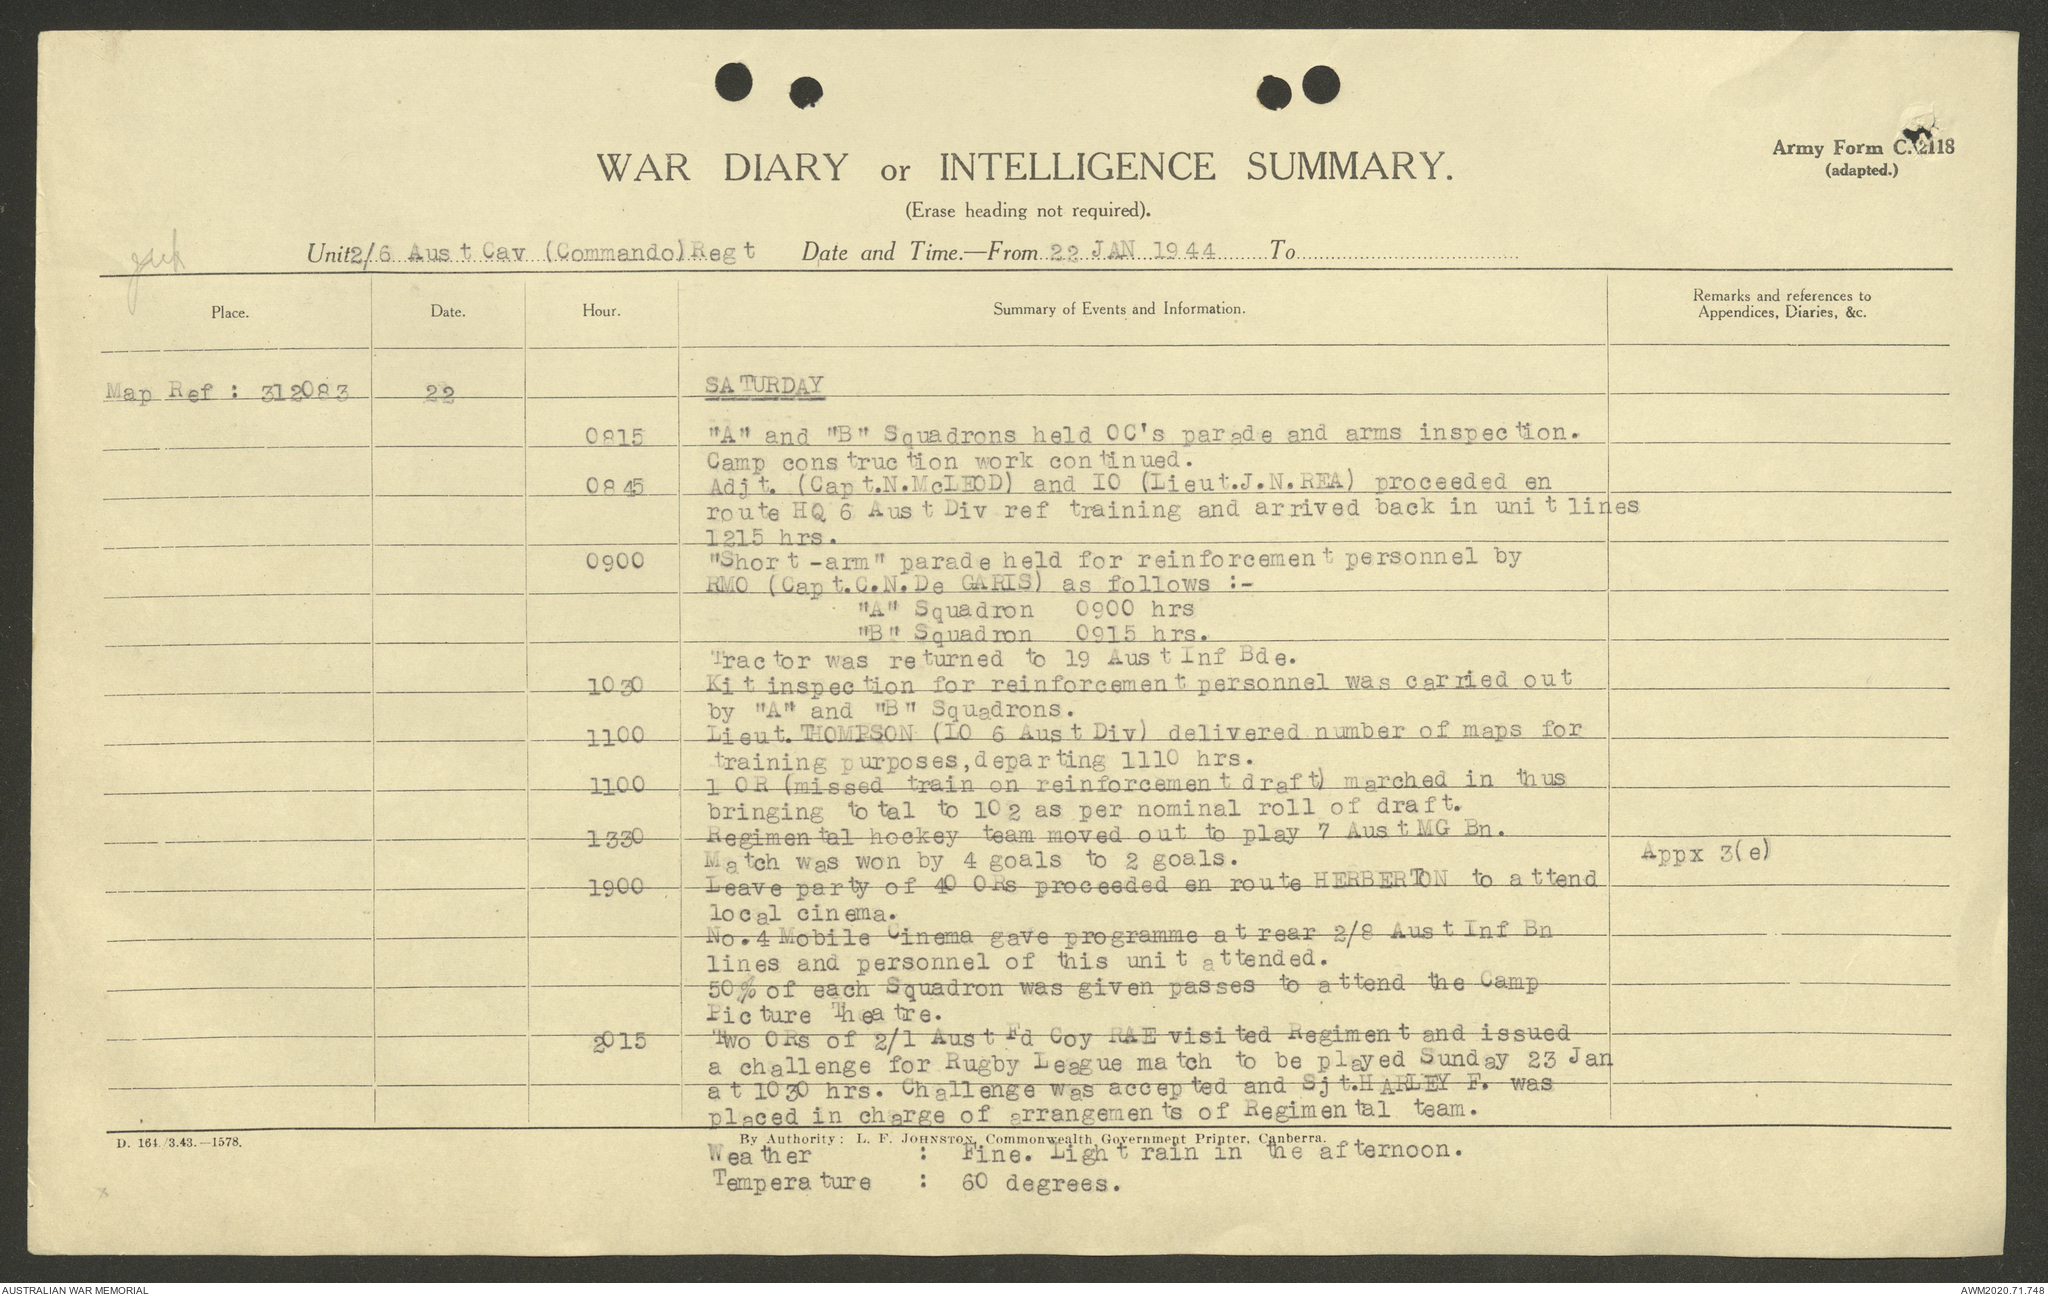 Army Form C.2118
(adapted.)
WAR DIARY or INTELLIGENCE SUMMARY.
(Erase heading not required).
Unit 2/6 Aust Cav (Commando) Regt Date and Time.—From 22 JAN 1944 To
Place. Date. Hour. Summary of Events and Information. Remarks and references to Appendices, Diaries, &c.
Map Ref : 312083 22 SATURDAY
0815 "A" and "B" Squadrons held OC's parade and arms inspection.
Camp construction work continued.
0845 Adjt. (Capt.N.McLEOD) and IO (Lieut.J.N.REA) proceeded en
route HQ 6 Aust Div ref training and arrived back in unit lines
1215 hrs.
0900 "Short-arm" parade held for reinforcement personnel by
RMO (Capt.C.N.De GARIS) as follows :-
"A" Squadron 0900 hrs
"B" Squadron 0915 hrs.
Tractor was returned to 19 Aust Inf Bde.
1030 Kit inspection for reinforcement personnel was carried out
by "A" and "B" Squadrons.
1100 Lieut.THOMPSON (LO 6 Aust Div) delivered number of maps for
training purposes,departing 1110 hrs.
1100 1 OR (missed train on reinforcement draft) marched in thus
bringing total to 102 as per nominal roll of draft.
1330 Regimental hockey team moved out to play 7 Aust MG Bn.
Match was won by 4 goals to 2 goals. Appx 3(e)
1900 Leave party of 40 ORs proceeded en route HERBERTON to attend
local cinema.
No.4 Mobile Cinema gave programme at rear 2/8 Aust Inf Bn
lines and personnel of this unit attended.
50% of each Squadron was given passes to attend the Camp
Picture Theatre.
2015 Two ORs of 2/1 Aust Fd Coy RAE visited Regiment and issued
a challenge for Rugby League match to be played Sunday 23 Jan
at 1030 hrs. Challenge was accepted and Sjt.HARLEY F. was
placed in charge of arrangements of Regimental team.
D. 164/3.43.—1578. By Authority: L. F. JOHNSTON, Commonwealth Government Printer, Canberra.
Weather : Fine. Light rain in the afternoon.
Temperature : 60 degrees.
AUSTRALIAN WAR MEMORIAL AWM2020.71.748